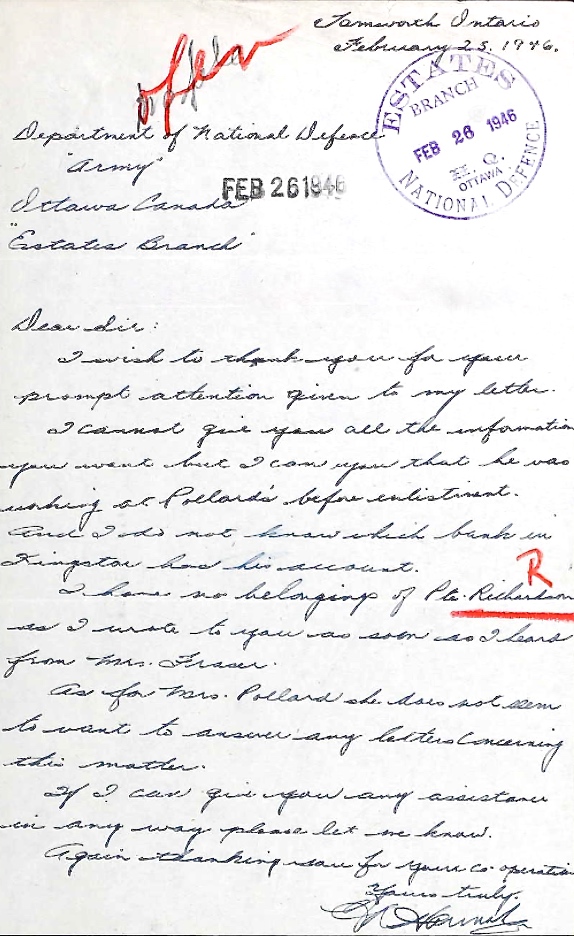 Tamworth Ontario
February 25, 1946.
ESTATES
BRANCH
FEB 26 1946
H. Q.
OTTAWA
NATIONAL DEFENCE
Department of National Defence
"Army"
FEB 26 1946
Ottawa Canada
"Estates Branch"
Dear Sir:
I wish to thank you for your
prompt attention given to my letter.
I cannot give you all the information
you want but I can you that he was
working at Pollard's before enlistment.
And I do not know which bank in
Kingston has his account.
R
I have no belongings of Pte. Richardson
as I wrote to you as soon as I heard
from Mrs. Fraser.
As for Mrs. Pollard she does not seem
to want to answer any letters concerning
this matter.
If I can give you any assistance
in any way please let me know.
Again thanking you for your co-operation
Yours truly,